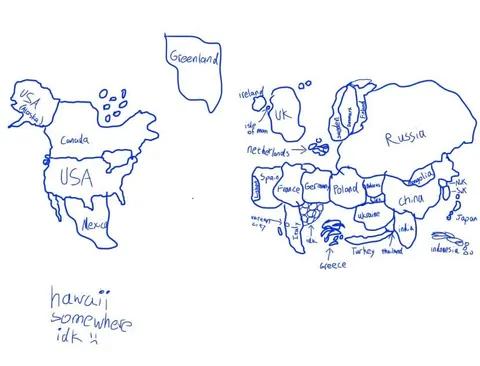 Greenland
USA
(Alaska)
Canada
USA
Mexico
hawaii
somewhere
idk
Ireland
isle of
man
UK
Netherlands
Sweden
Finland
Russia
Spain
France
Germany
Poland
Ukraine
Mongolia
China
NK
SK
Japan
india
indonesia
vatican
city
Italy
idk
Greece
Turkey
thailand